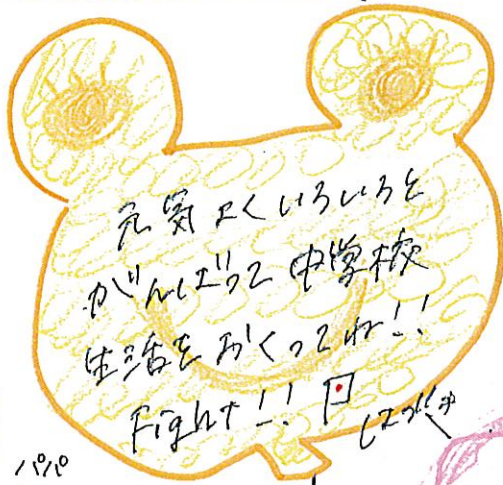 元気よくいろいろと
がんばって中学校
生活をおくってね!!
Fight!!
パパ